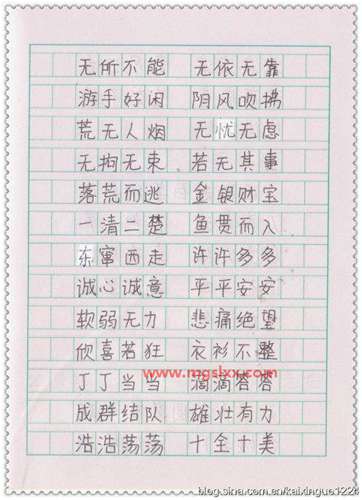 无所不能 无依无靠
游手好闲 阴风吹拂
荒无人烟 无忧无虑
无拘无束 若无其事
落荒而逃 金银财宝
一清二楚 鱼贯而入
东窜西走 许许多多
诚心诚意 平平安安
软弱无力 悲痛绝望
欣喜若狂 衣衫不整
www.mgslxx.com
丁丁当当 滴滴答答
成群结队 雄壮有力
浩浩荡荡 十全十美
blog.sina.com.cn/kaixingue1224